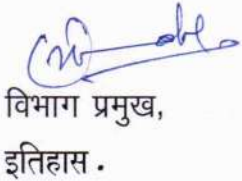 विभाग प्रमुख,
इतिहास .